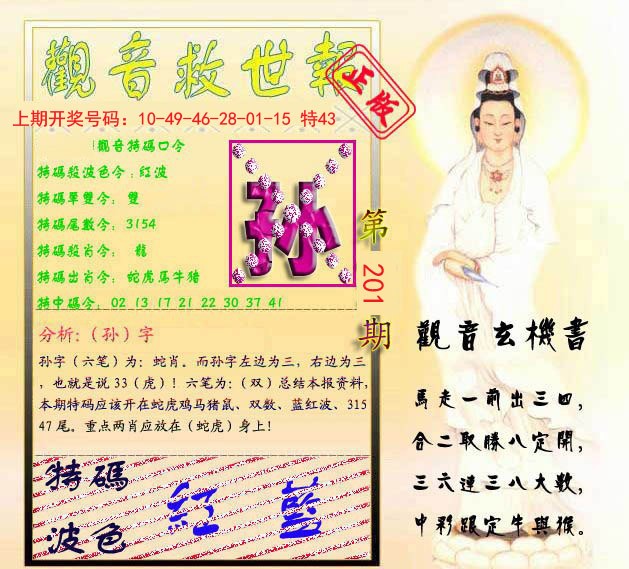 觀音救世報
正版
上期开奖号码：10-49-46-28-01-15 特43
觀音特碼口令
特碼殺波色令：紅波
特碼單雙令： 雙
特碼尾數令：3154
特碼殺肖令： 龍
特碼出肖令：蛇虎馬牛猪
特中碼令：02 13 17 21 22 30 37 41
孙
第201期
分析：（孙）字
孙字（六笔）为：蛇肖。而孙字左边为三，右边为三
，也就是说33（虎）！六笔为：（双）总结本报资料，
本期特码应该开在蛇虎鸡马猪鼠、双数、蓝红波、315
47尾。重点两肖应放在（蛇虎）身上！
特碼
波色
紅 藍
觀音玄機書
馬走一前出三四，
合二取勝八定開，
三六連三八大數，
中彩跟定牛與猴。